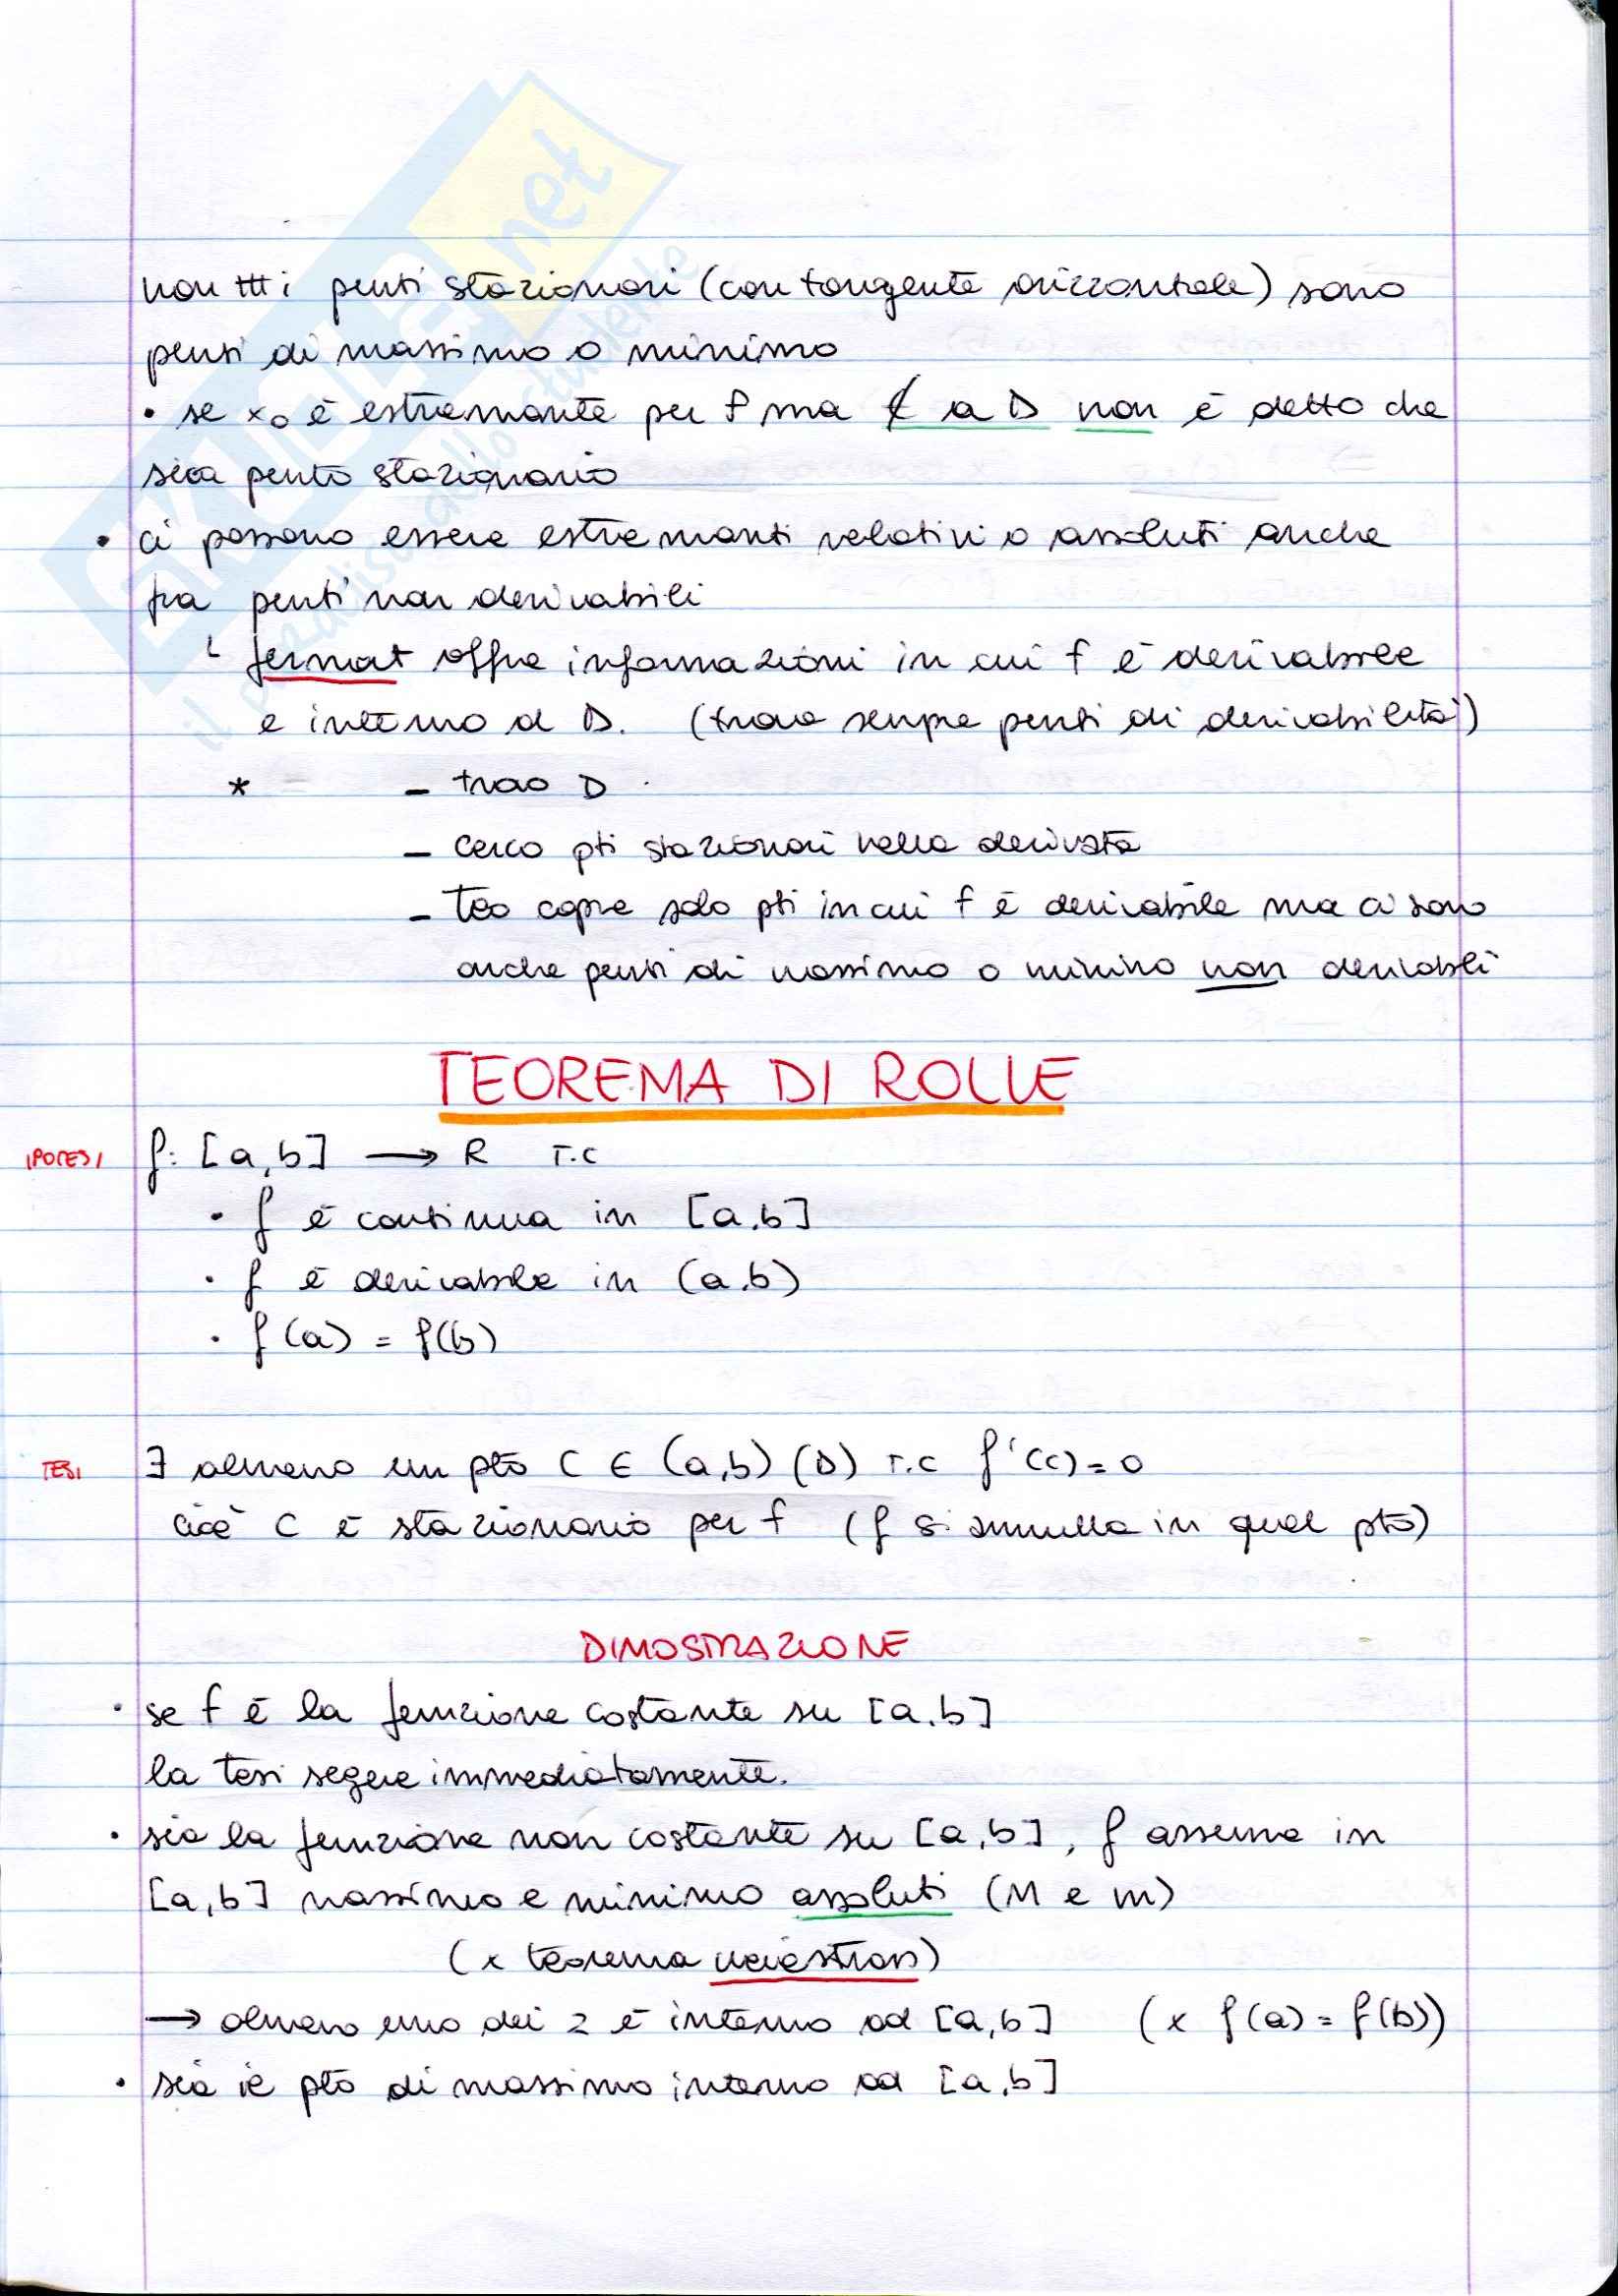 non ttt i punti stazionari (con tangente orizzontale) sono
punti di massimo o minimo
• se x₀ è estremante per f ma ∉ a D non è detto che
sia punto stazionario
• ci possono essere estremanti relativi o assoluti anche
fra punti non derivabili
└ fermat offre informazioni in cui f è derivabile
e interno a D. (trova sempre punti di derivabilità)
* - trovo D
- cerco pti stazionari nella derivata
- teo copre solo pti in cui f è derivabile ma ci sono
anche punti di massimo o minimo non derivabili
TEOREMA DI ROLLE
IPOTESI f: [a,b] → R T.c
• f è continua in [a,b]
• f è derivabile in (a,b)
• f(a) = f(b)
TESI ∃ almeno un pto C ∈ (a,b) (D) T.c f'(c) = 0
cioè C è stazionario per f (f si annulla in quel pto)
DIMOSTRAZIONE
• se f è la funzione costante su [a,b]
la tesi segue immediatamente.
• sia la funzione non costante su [a,b], f assume in
[a,b] massimo e minimo assoluti (M e m)
(x teorema weiestrass)
→ almeno uno dei 2 è interno ad [a,b] (x f(a) = f(b))
• sia il pto di massimo interno ad [a,b]
SKUOLA.net
il paradiso dello studente